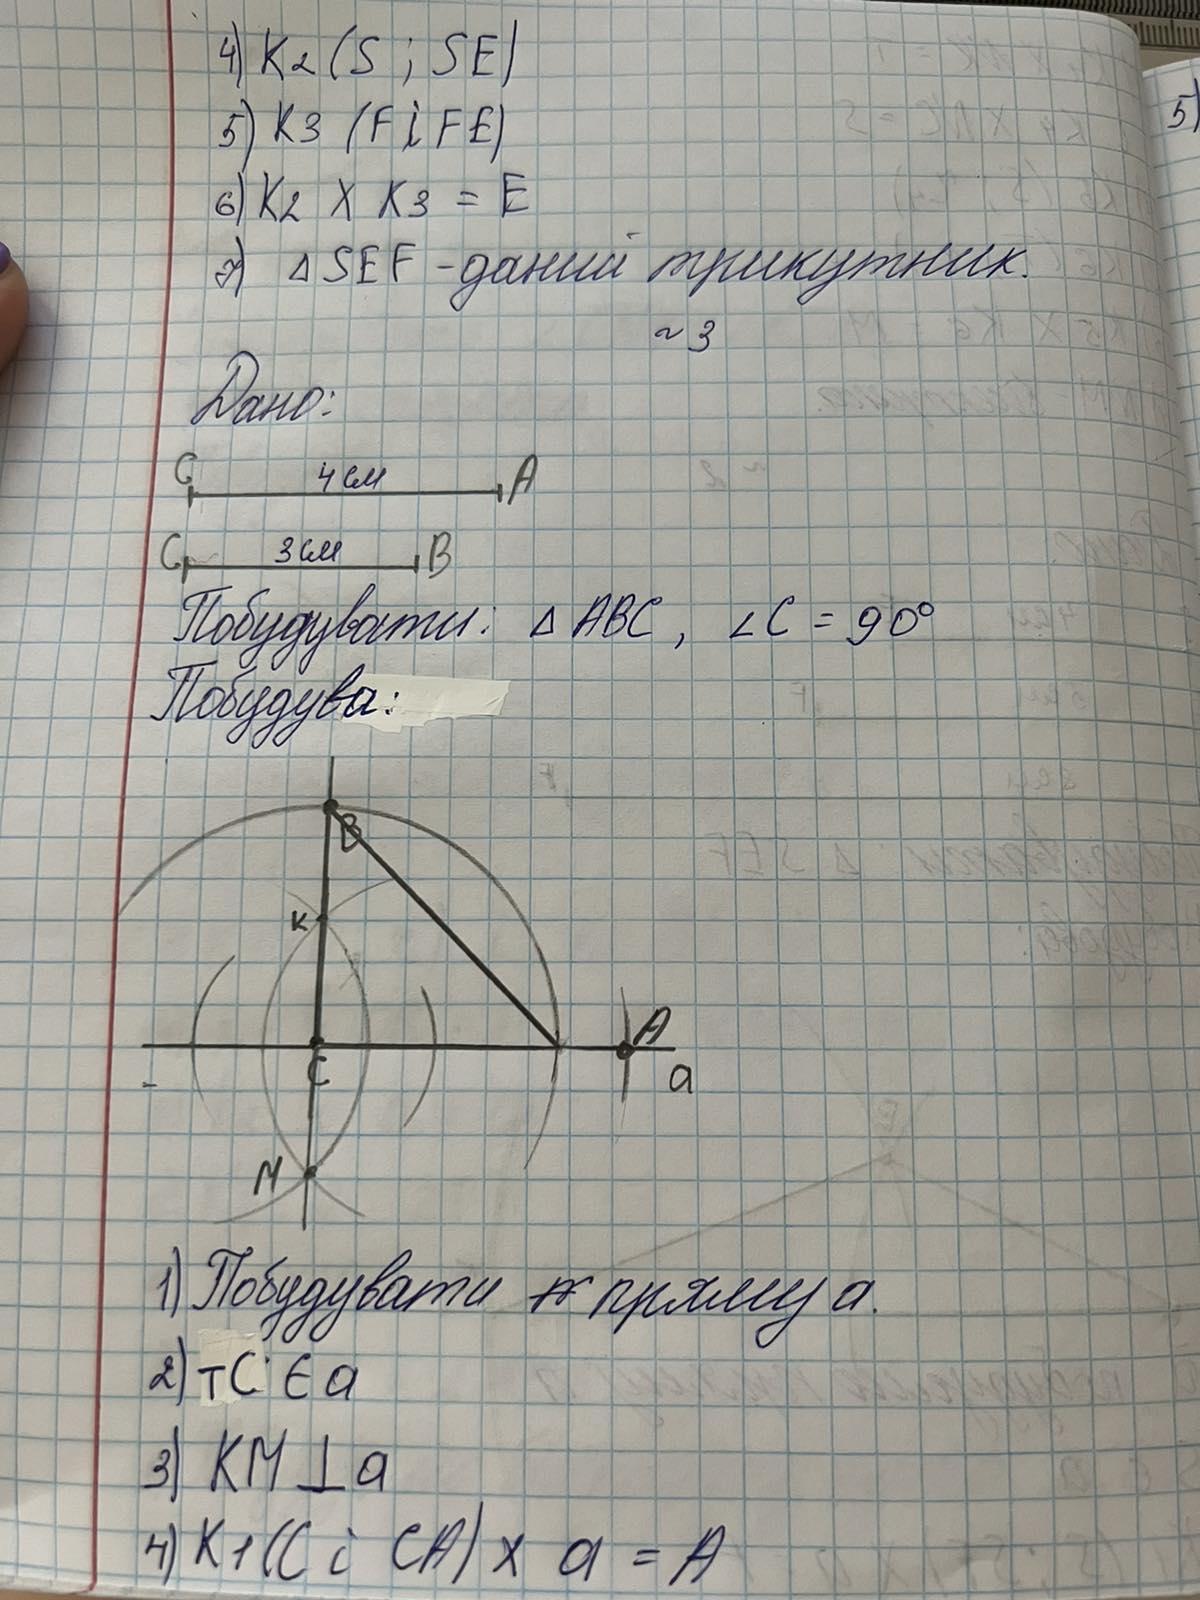 4) K2 (S ; SE)
5) K3 (F i FE)
6) K2 X K3 = E
7) Δ SEF - даний трикутник.
~ 3
Дано:
C 4 см A
C 3 см B
Побудувати: Δ ABC, ∠C = 90°
Побудува:
B
K
A
C
a
M
1) Побудувати пряму a.
2) тC Є a
3) KM ⊥ a
4) K1 (C i CA) X a = A
5)